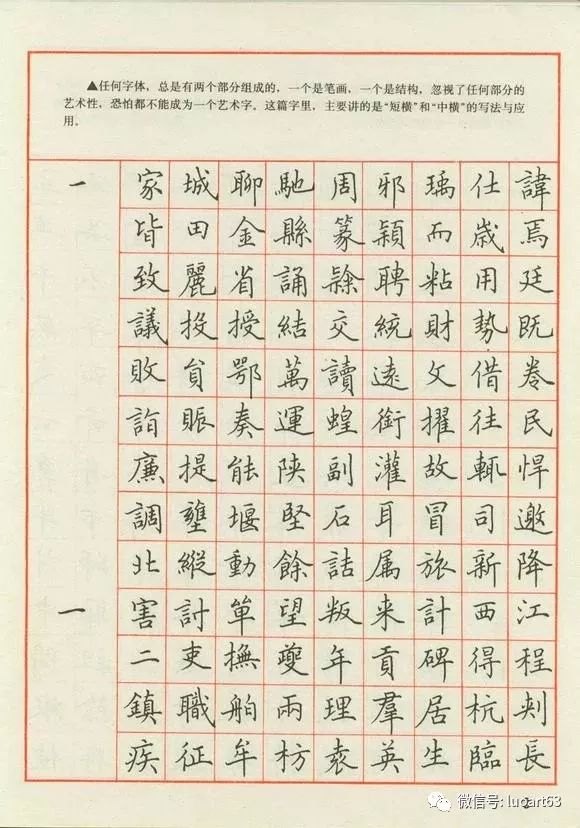 ▲任何字体，总是有两个部分组成的，一个是笔画，一个是结构，忽视了任何部分的
艺术性，恐怕都不能成为一个艺术字。这篇字里，主要讲的是“短横”和“中横”的写法与应
用。
一 家 城 聊 馳 周 邪 瑀 仕 諱
皆 田 金 縣 篆 穎 而 歲 焉
致 麗 省 誦 聘 粘 用 廷
議 投 授 結 交 統 財 勢 既
敗 貟 鄂 萬 讀 遠 文 借 卷
詣 賑 奏 運 蝗 銜 擢 往 民
廉 提 能 陕 副 灌 故 輒 悍
調 壅 堰 堅 石 耳 冒 司 邀
北 縱 動 餘 詰 属 旅 新 降
一 害 討 箄 望 叛 来 計 西 江
二 吏 撫 夔 年 貢 碑 得 程
鎮 職 舶 兩 理 羣 居 杭
疾 征 牟 枋 袁 英 生 臨 長
微信号: luoart63